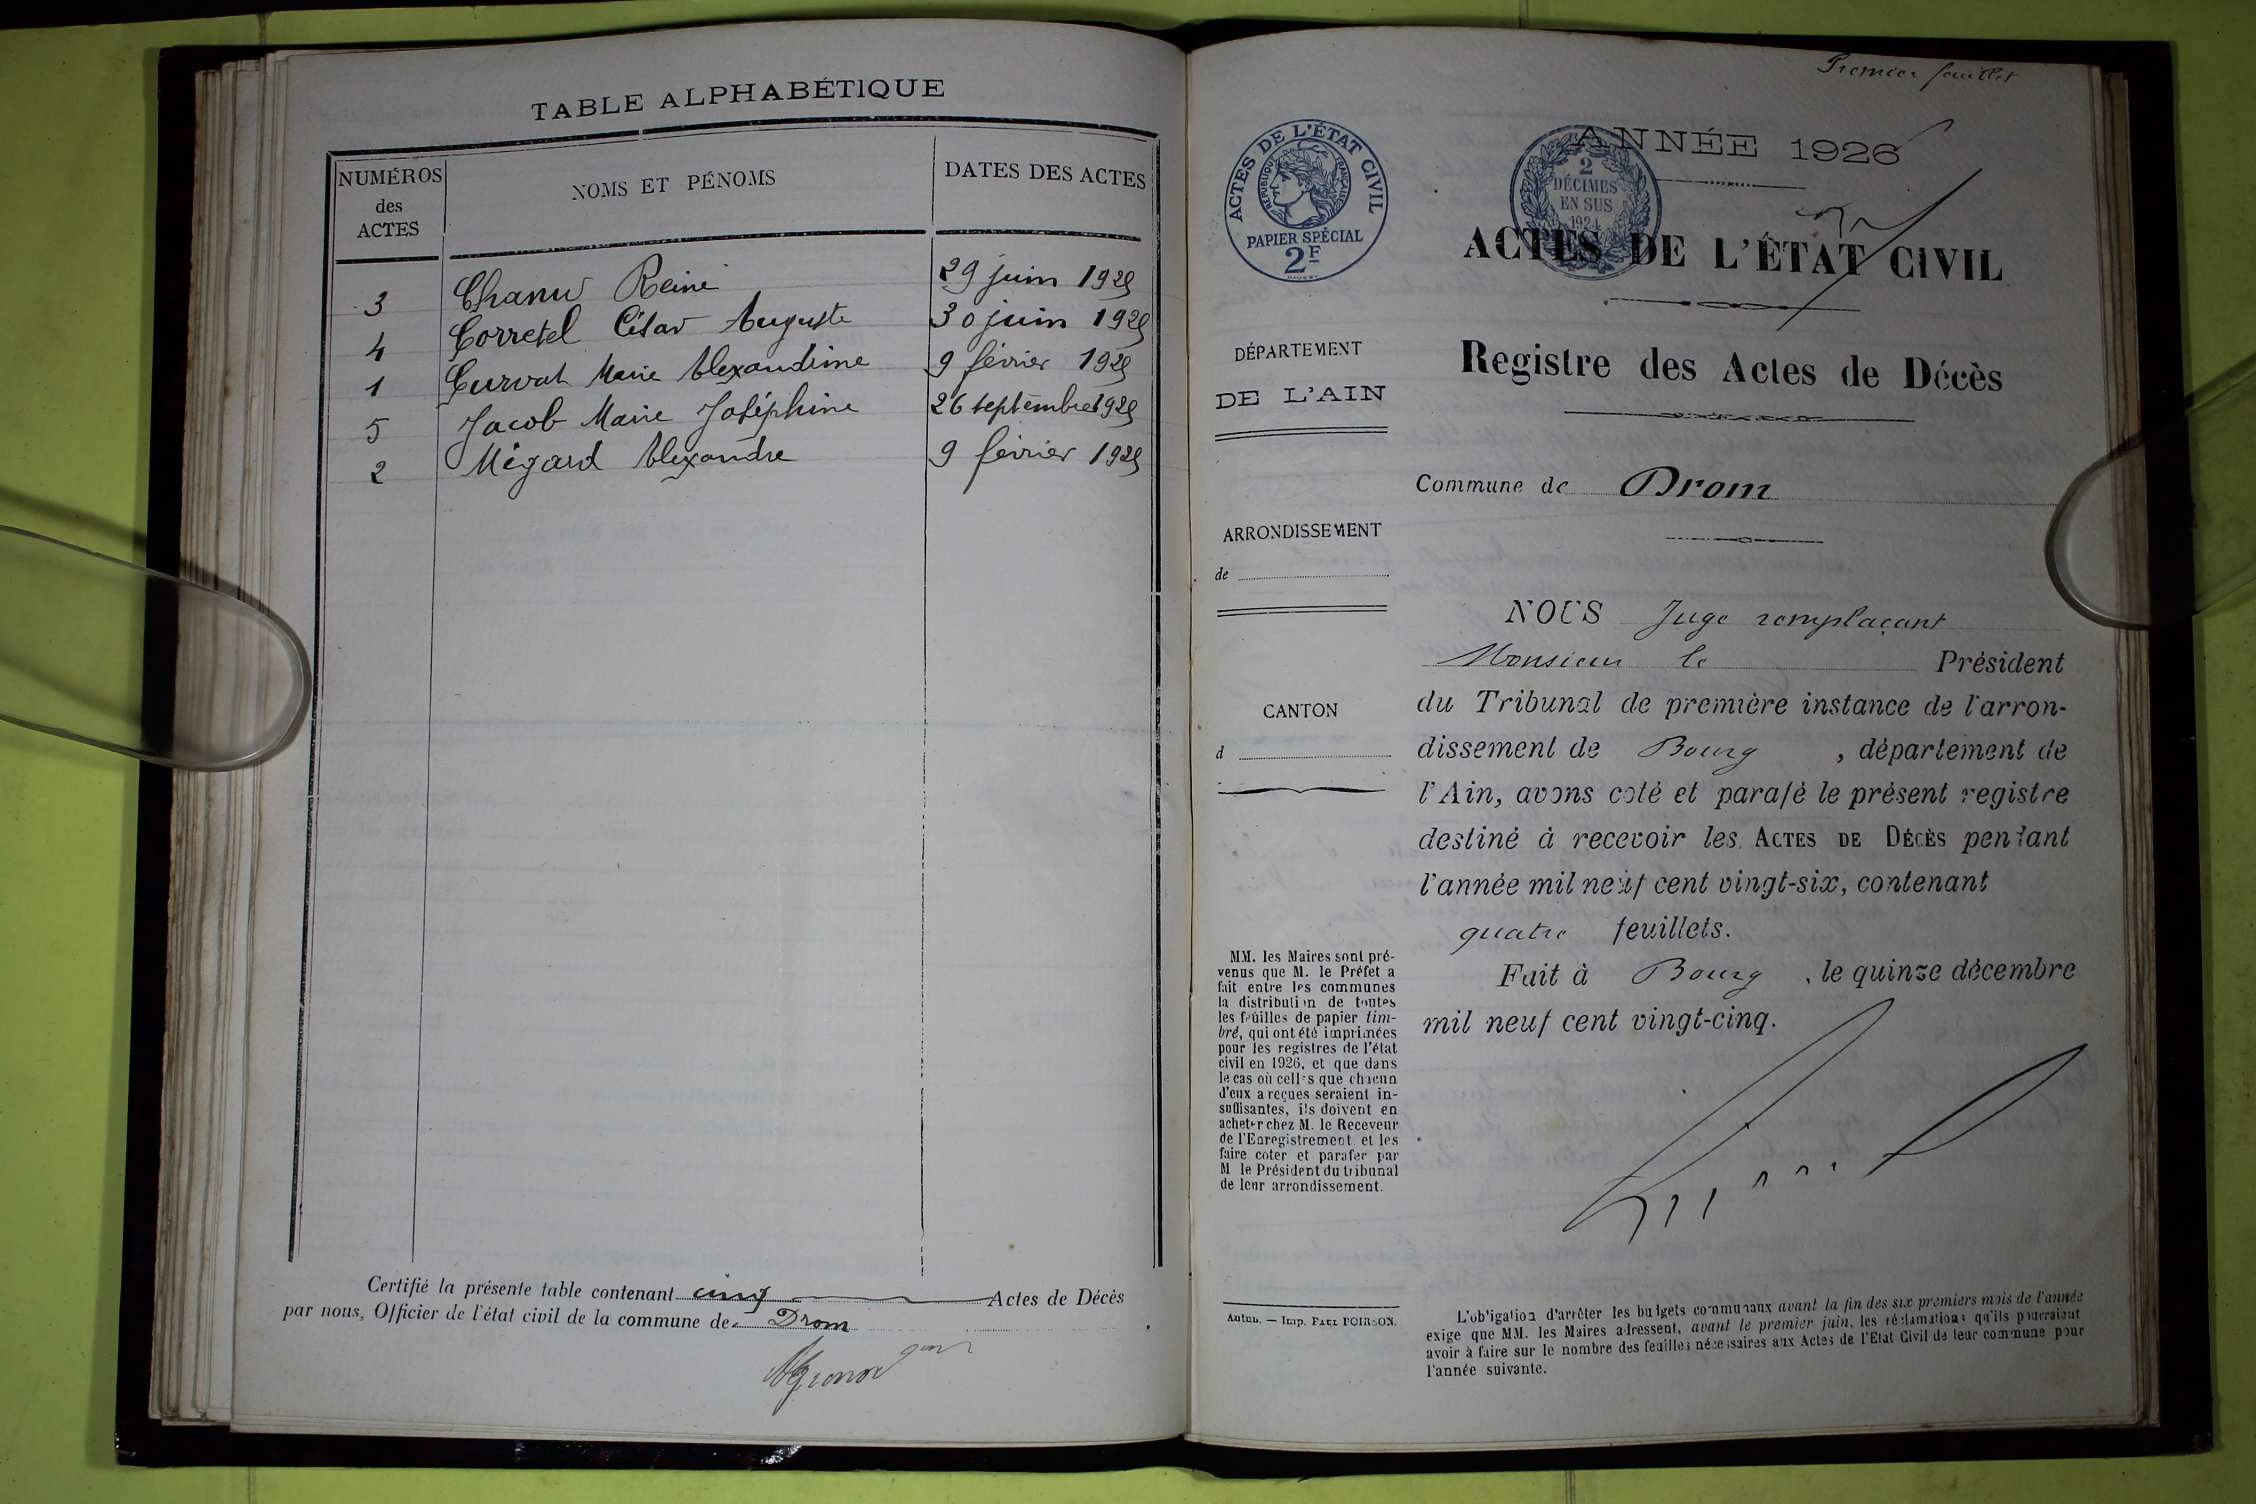 TABLE ALPHABÉTIQUE
NUMÉROS
des
ACTES
NOMS ET PÉNOMS
DATES DES ACTES
3 Chanu Reine 29 juin 1925
4 Corretel César Auguste 30 juin 1925
1 Curvat Marie Alexandrine 9 février 1925
5 Jacob Marie Joséphine 26 septembre 1925
2 Mégard Alexandre 9 février 1925
Certifié la présente table contenant cinq Actes de Décès
par nous, Officier de l'état civil de la commune de Drom
Premier feuillet
ANNÉE 1926
ACTES DE L'ÉTAT CIVIL
RÉPUBLIQUE FRANÇAISE
PAPIER SPÉCIAL
2F
2
DÉCIMES
EN SUS
1924
ACTES DE L'ÉTAT CIVIL
Registre des Actes de Décès
DÉPARTEMENT
DE L'AIN
Commune de Drom
ARRONDISSEMENT
de
CANTON
d
NOUS Juge remplaçant
Monsieur le Président
du Tribunal de première instance de l'arron-
dissement de Bourg, département de
l'Ain, avons coté et parafé le présent registre
destiné à recevoir les ACTES DE DÉCÈS pendant
l'année mil neuf cent vingt-six, contenant
quatre feuillets.
Fait à Bourg, le quinze décembre
mil neuf cent vingt-cinq.
MM. les Maires sont pré-
venus que M. le Préfet a
fait entre les communes
la distribution de toutes
les feuilles de papier tim-
bré, qui ont été imprimées
pour les registres de l'état
civil en 1926, et que dans
le cas où celles que chacun
d'eux a reçues seraient in-
suffisantes, ils doivent en
acheter chez M. le Receveur
de l'Enregistrement et les
faire coter et parafer par
M le Président du tribunal
de leur arrondissement.
Autun. — Imp. PAUL POIRSON.
L'obligation d'arrêter les budgets communaux avant la fin des six premiers mois de l'année
exige que MM. les Maires adressent, avant le premier juin, les réclamations qu'ils pourraient
avoir à faire sur le nombre des feuilles nécessaires aux Actes de l'Etat Civil de leur commune pour
l'année suivante.